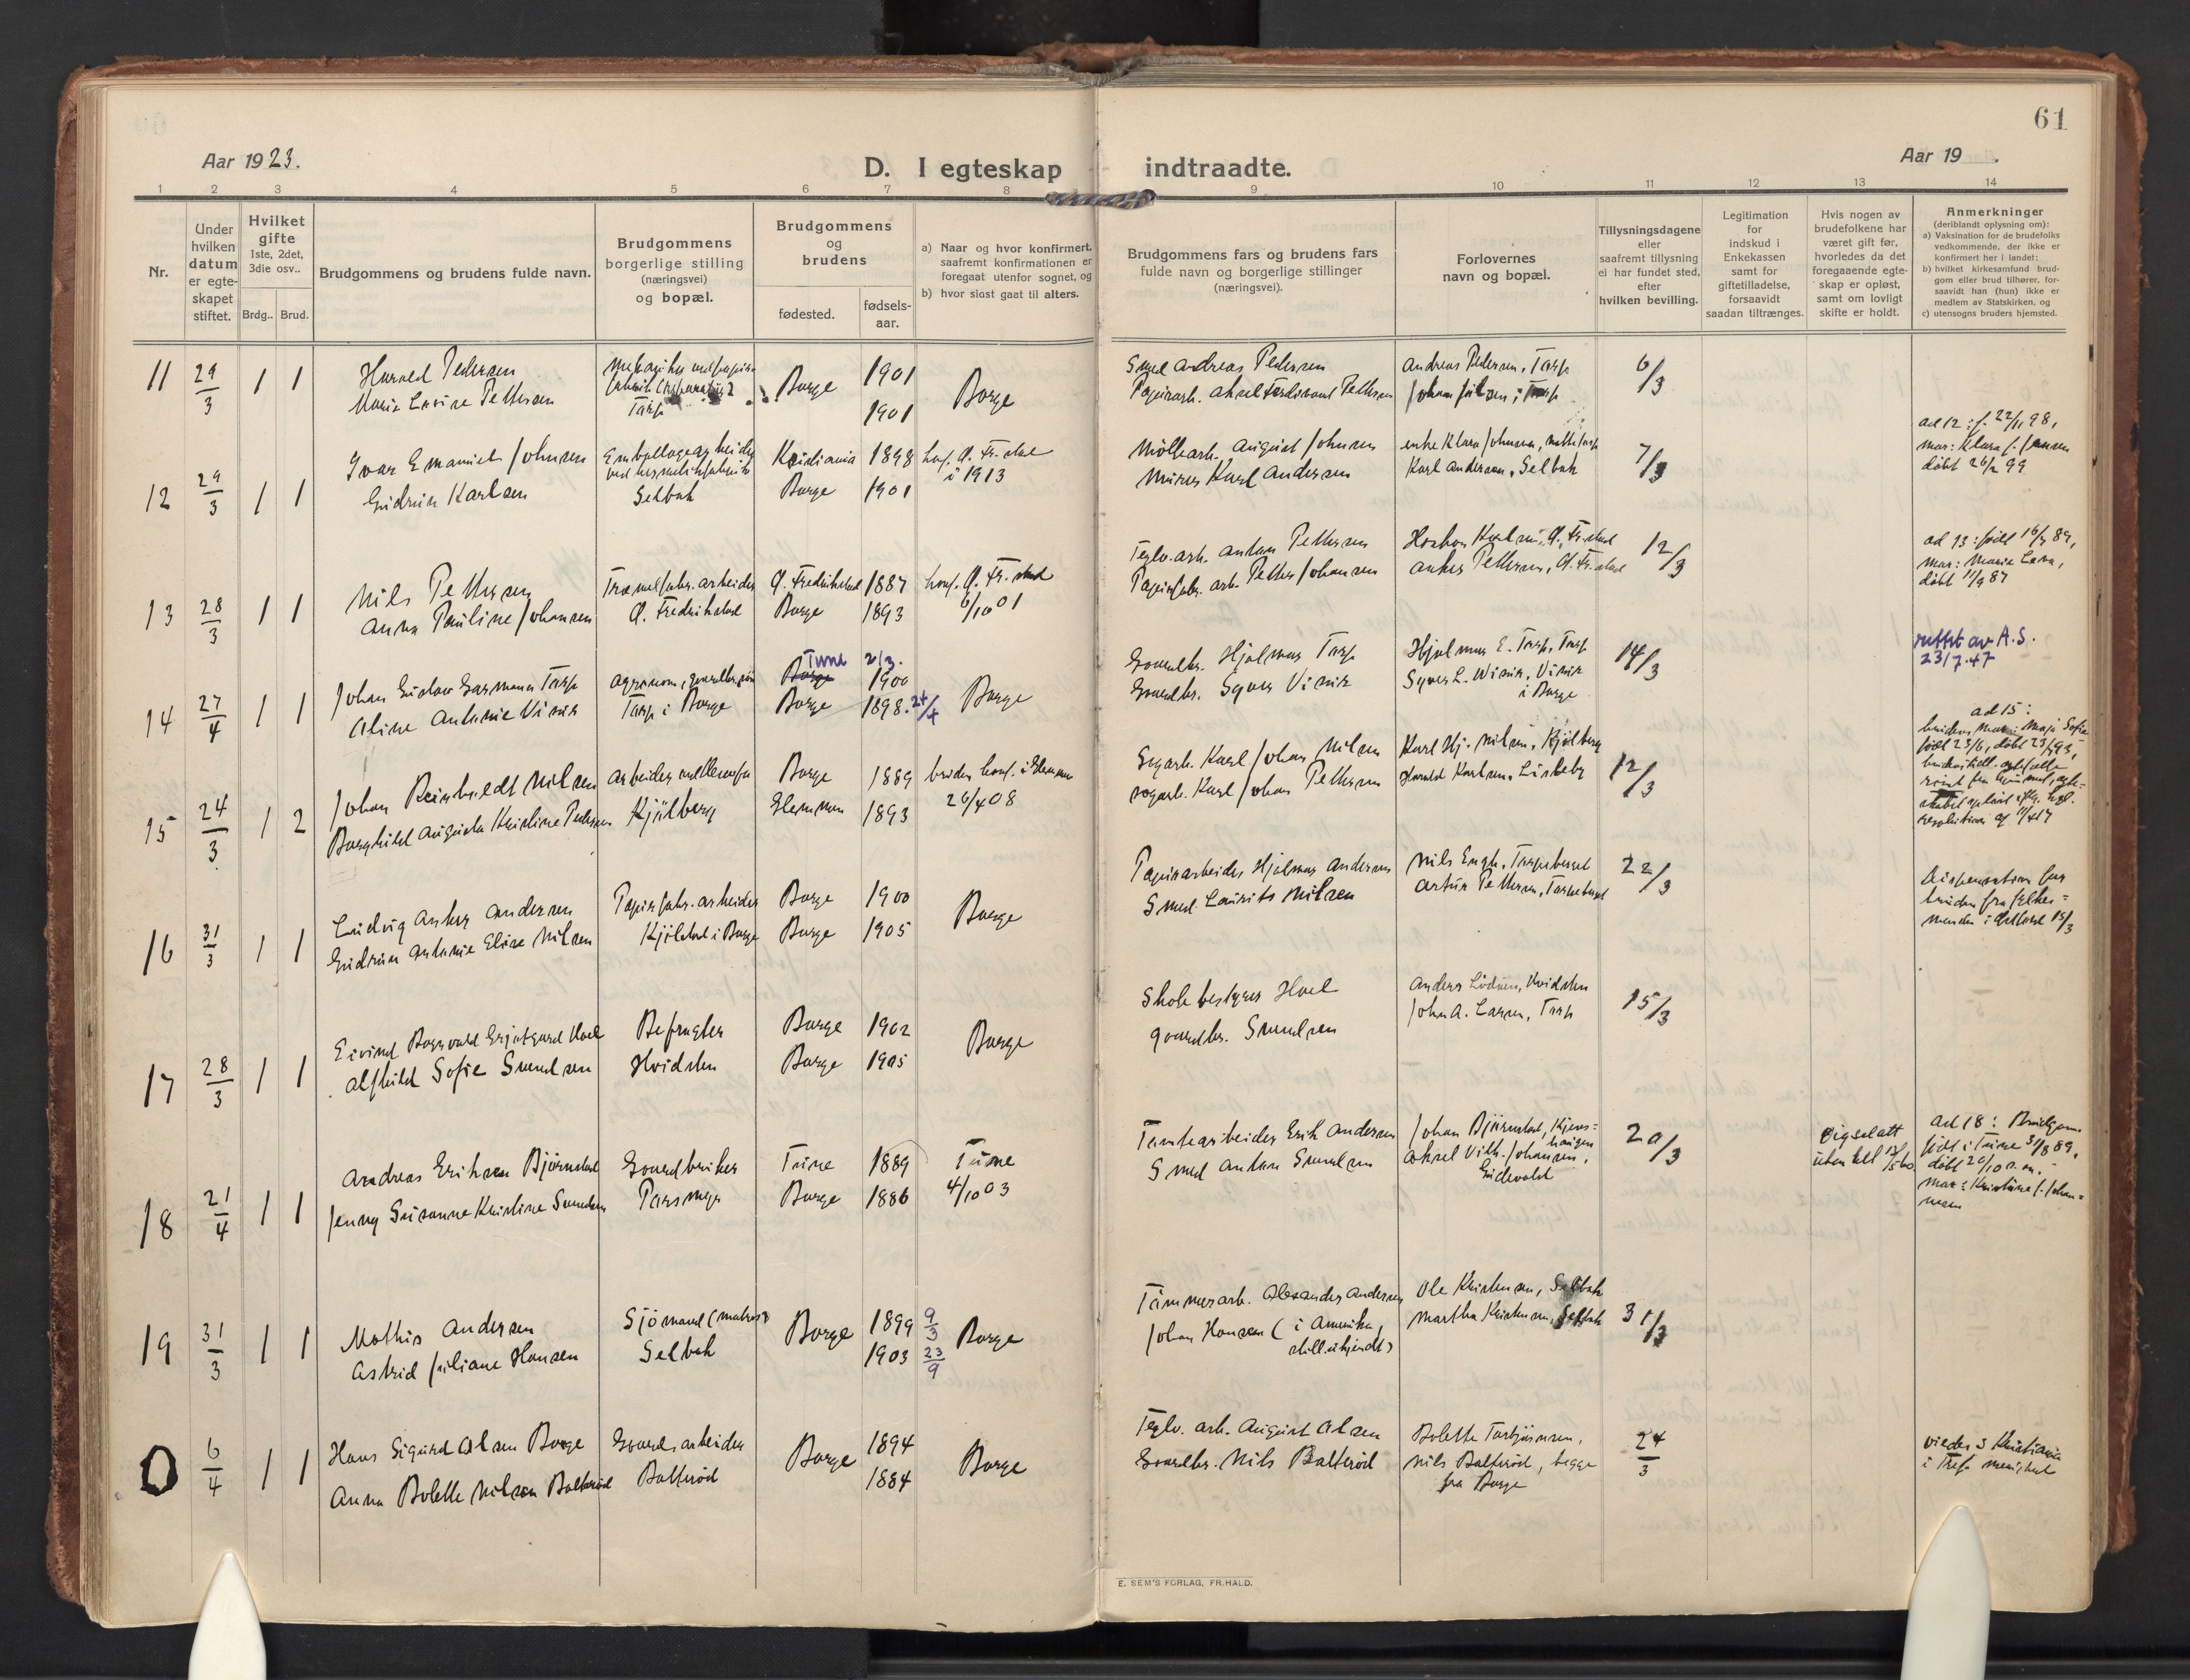 61
Aar 1923.
D. I egteskap indtraadte.
Aar 19 .
1 2 3 4 5 6 7 8 9 10 11 12 13 14
Nr.
Under hvilken datum er egte-skapet stiftet.
Hvilket gifte 1ste, 2det, 3die osv..
Brdg.. Brud.
Brudgommens og brudens fulde navn.
Brudgommens borgerlige stilling (næringsvei) og bopæl.
Brudgommens og brudens
fødested.
fødsels-aar.
a) Naar og hvor konfirmert, saafremt konfirmationen er foregaat utenfor sognet, og
b) hvor sidst gaat til alters.
Brudgommens fars og brudens fars fulde navn og borgerlige stillinger (næringsvei).
Forlovernes navn og bopæl.
Tillysningsdagene eller saafremt tillysning ei har fundet sted, efter hvilken bevilling.
Legitimation for indskud i Enkekassen samt for giftetilladelse, forsaavidt saadan tiltrænges.
Hvis nogen av brudefolkene har været gift før, hvorledes da det foregaaende egte-skap er opløst, samt om lovligt skifte er holdt.
Anmerkninger (deriblandt oplysning om):
a) Vaksination for de brudefolks vedkommende, der ikke er konfirmert her i landet;
b) hvilket kirkesamfund brud-gom eller brud tilhører, for-saavidt han (hun) ikke er medlem av Statskirken, og
c) utensogns bruders hjemsted.
11 29/3 1 1
Harald Pedersen
Marie Lovise Pettersen
Tarp
Borge 1901
1901
Borge
Smed Andreas Pedersen
Papirarb. Aksel Ferdinand Pettersen
Andreas Pedersen, Tarp
Johan Julsen, Tarp
6/3
12 29/3 1 1
Ivar Emanuel Johnsen
Gudrun Karlsen
Selbak
Kristiania 1898
Borge 1901
konf. Gl. Fr.stad
i 1913
Møllearb. August Johnsen
Murer Karl Andersen
enke Klara Johnsen,
Karl Andersen, Selbak
7/3
ad 12: f. 22/11 98,
mor: Klara f. Jansen
døbt 26/2 99
13 28/3 1 1
Nils Pettersen
Anna Pauline Johansen
Træmelfabr. arbeider
Gl. Fredrikstad
Gl. Fredrikstad 1887
Borge 1893
konf. Gl. Fr. stad
6/10 01
Teglv. arb. Anton Pettersen
Papirfabr. arb. Petter Johansen
Karlsen, Gl. Fr.stad
Anker Pettersen, Gl. Fr.stad
12/3
ad 13: født 16/7 89,
mor: Marie Lena,
døbt 11/9 87
14 27/4 1 1
Johan Gustav Garmann Tarp
Aline Antonie Visur
Agronom, gaardbr.søn
Tarp i Borge
Tune 2/3.
Borge 1900
Borge 1898. 24/4
Borge
Gaardbr. Hjalmar Tarp
Gaardbr. Syver Visur
Hjalmar E. Tarp, Tarp
Syver L. Wisur, Visur
i Borge
14/3
rettet av A.S.
23/7.47
15 24/3 1 2
Johan Reinholdt Nilsen
Borghild Augusta Kristine Pedersen
Kjølberg
Borge 1889
Glemmen 1893
bruden konf. i Glemmen
26/4 08
Sagarb. Karl Johan Nilsen
Sagarb. Karl Johan Pettersen
Karl Hj. Nilsen, Kjølberg
Harald Karlsen, Lisleby
12/3
ad 15:
brudens mor: Maja Sofie
født 23/6, døbt 23/7 93,
16 31/3 1 1
Ludvig Anker Andersen
Gudrun Antonie Elise Nilsen
Papirfabr. arbeider
Kjølstad i Borge
Borge 1900
Borge 1905
Borge
Papirarbeider Hjalmar Andersen
Smed Laurits Nilsen
Nils Engh, Torpeberget
Artur Pettersen, Torpeberget
22/3
Dispensation for
bruden fra fylkes-
manden i Østfold 15/3
17 28/3 1 1
Eivind Hoel
Alfhild Sofie Svendsen
Befragter
Hvidsten
Borge 1902
Borge 1905
Borge
Skolebestyrer Hoel
Gaardbr. Svendsen
Anders Lødøen, Hvidsten
John A. Larsen, Tarp
15/3
18 21/4 1 1
Andreas Eriksen Bjørnstad
Jenny Susanne Kristine Svendsen
Gaardbruker
Tune 1889
Borge 1886
Tune
4/10 03
Tomtearbeider Erik Andersen
Smed Anton Svendsen
Johan Bjørnstad, Kjens-
haugen
Aksel Vilh. Johansen,
Gudevold
20/3
Vigselatt
uten
ad 18: Brudgom.
født i Tune 31/8 89,
døbt 20/10 s. m.
mor: Kristine f. Johan-
nesen
19 31/3 1 1
Mathis Andersen
Astrid Juliane Hansen
Sjømand (matros)
Selbak
Borge 1899 9/3
1903 23/9
Borge
Tømmerarb. Alexander Andersen
Johan Hansen (i Amerika,
still. ukjendt)
Ole Kristensen, Selbak
Martha Kristensen, Selbak
31/3
0 6/4 1 1
Hans Sigurd Olsen Borge
Anna Bolette Nilsen Balterød
Gaardsarbeider
Balterød
Borge 1894
1884
Borge
Teglv. arb. August Olsen
Gaardbr. Nils Balterød
Bolette Torbjørnsen,
Nils Balterød, begge
fra Borge
24/3
vieder i Kristiania
i Trefo menighed
E. SEM'S FORLAG, FR.HALD.